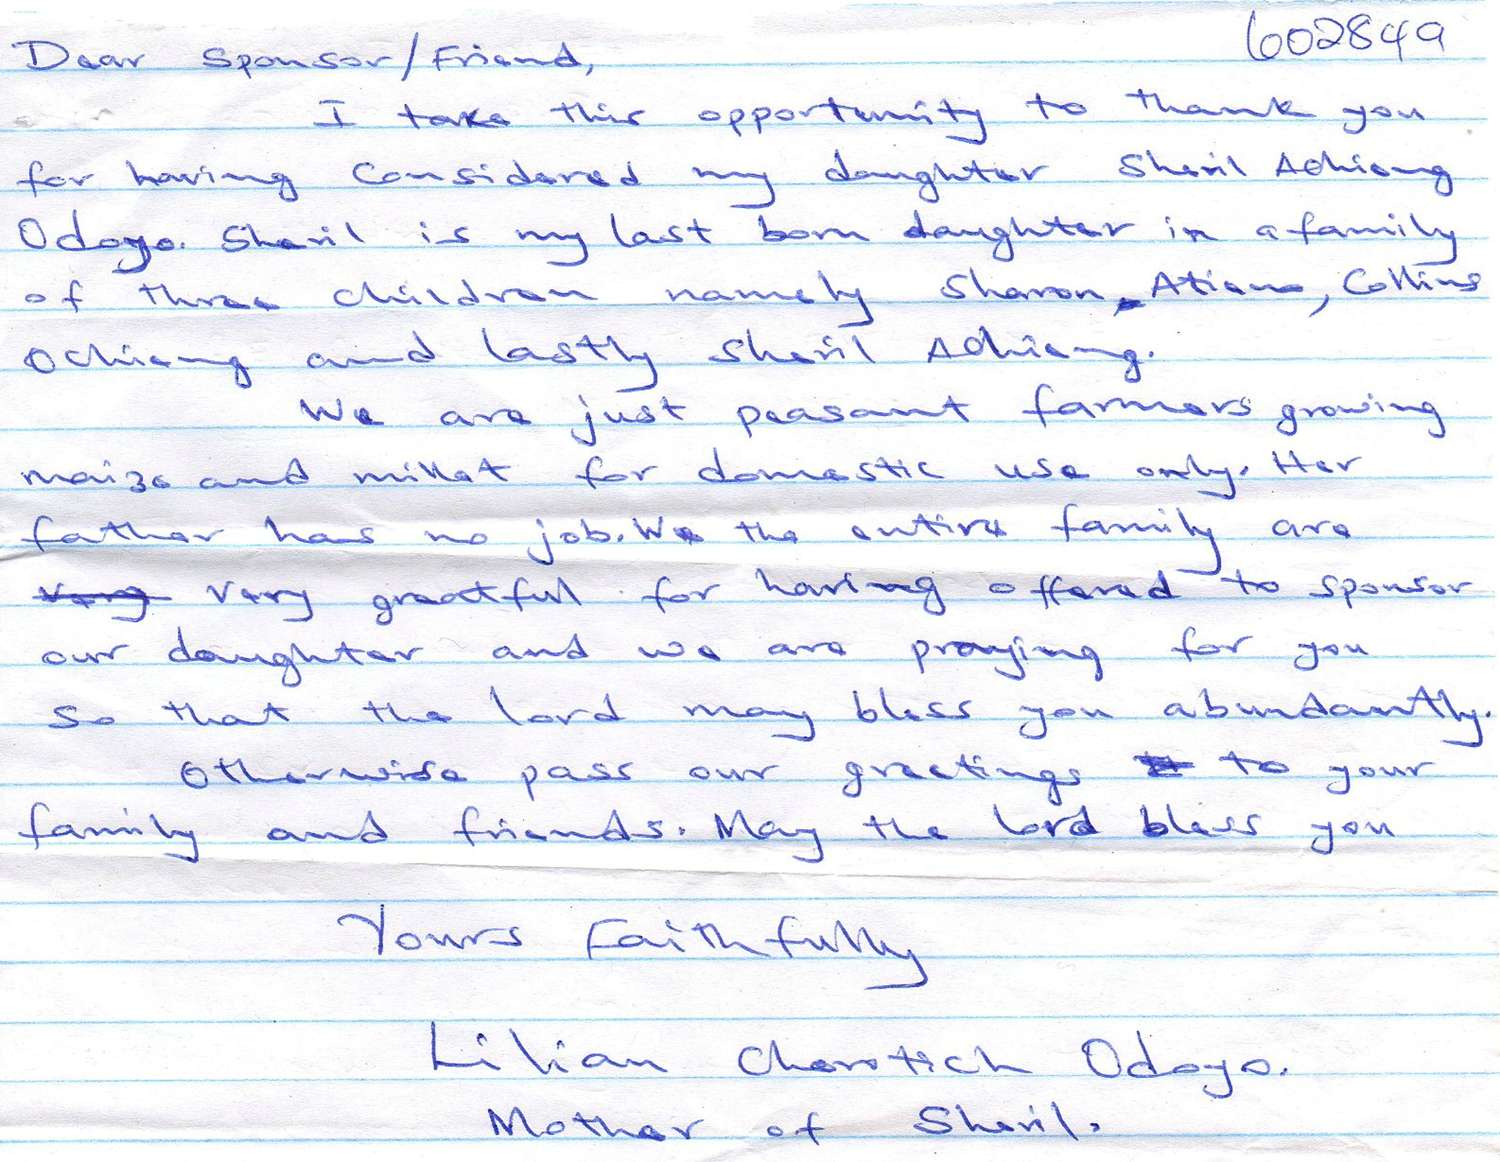 602849
Dear Sponsor/Friend,
I take this opportunity to thank you
for having considered my daughter Sheril Achieng
Odoyo. Sheril is my last born daughter in a family
of three children namely Sharon, Atieno, Collins
Ochieng and lastly Sheril Achieng.
We are just peasant farmers growing
maize and millet for domestic use only. Her
father has no job. We the entire family are
very very greatful for having offered to sponsor
our daughter and we are praying for you
so that the lord may bless you abundantly.
Otherwise pass our greetings to your
family and friends. May the lord bless you
Yours Faithfully
Lilian Cherotich Odoyo.
Mother of Sheril.